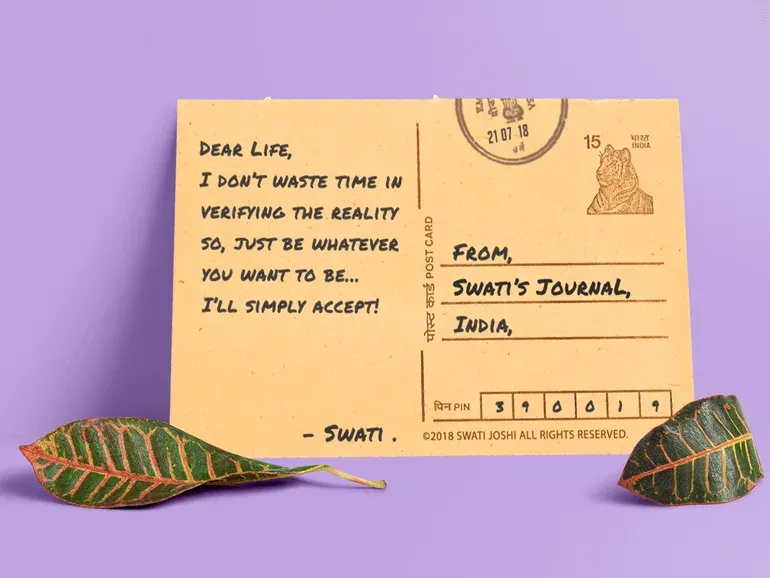 DEAR LIFE,
I DON'T WASTE TIME IN
VERIFYING THE REALITY
SO, JUST BE WHATEVER
YOU WANT TO BE...
I'LL SIMPLY ACCEPT!
- SWATI .
पोस्ट कार्ड POST CARD
21 07 18
15 भारत
INDIA
FROM,
SWATI'S JOURNAL,
INDIA,
पिन PIN 3 9 0 0 1 9
©2018 SWATI JOSHI ALL RIGHTS RESERVED.